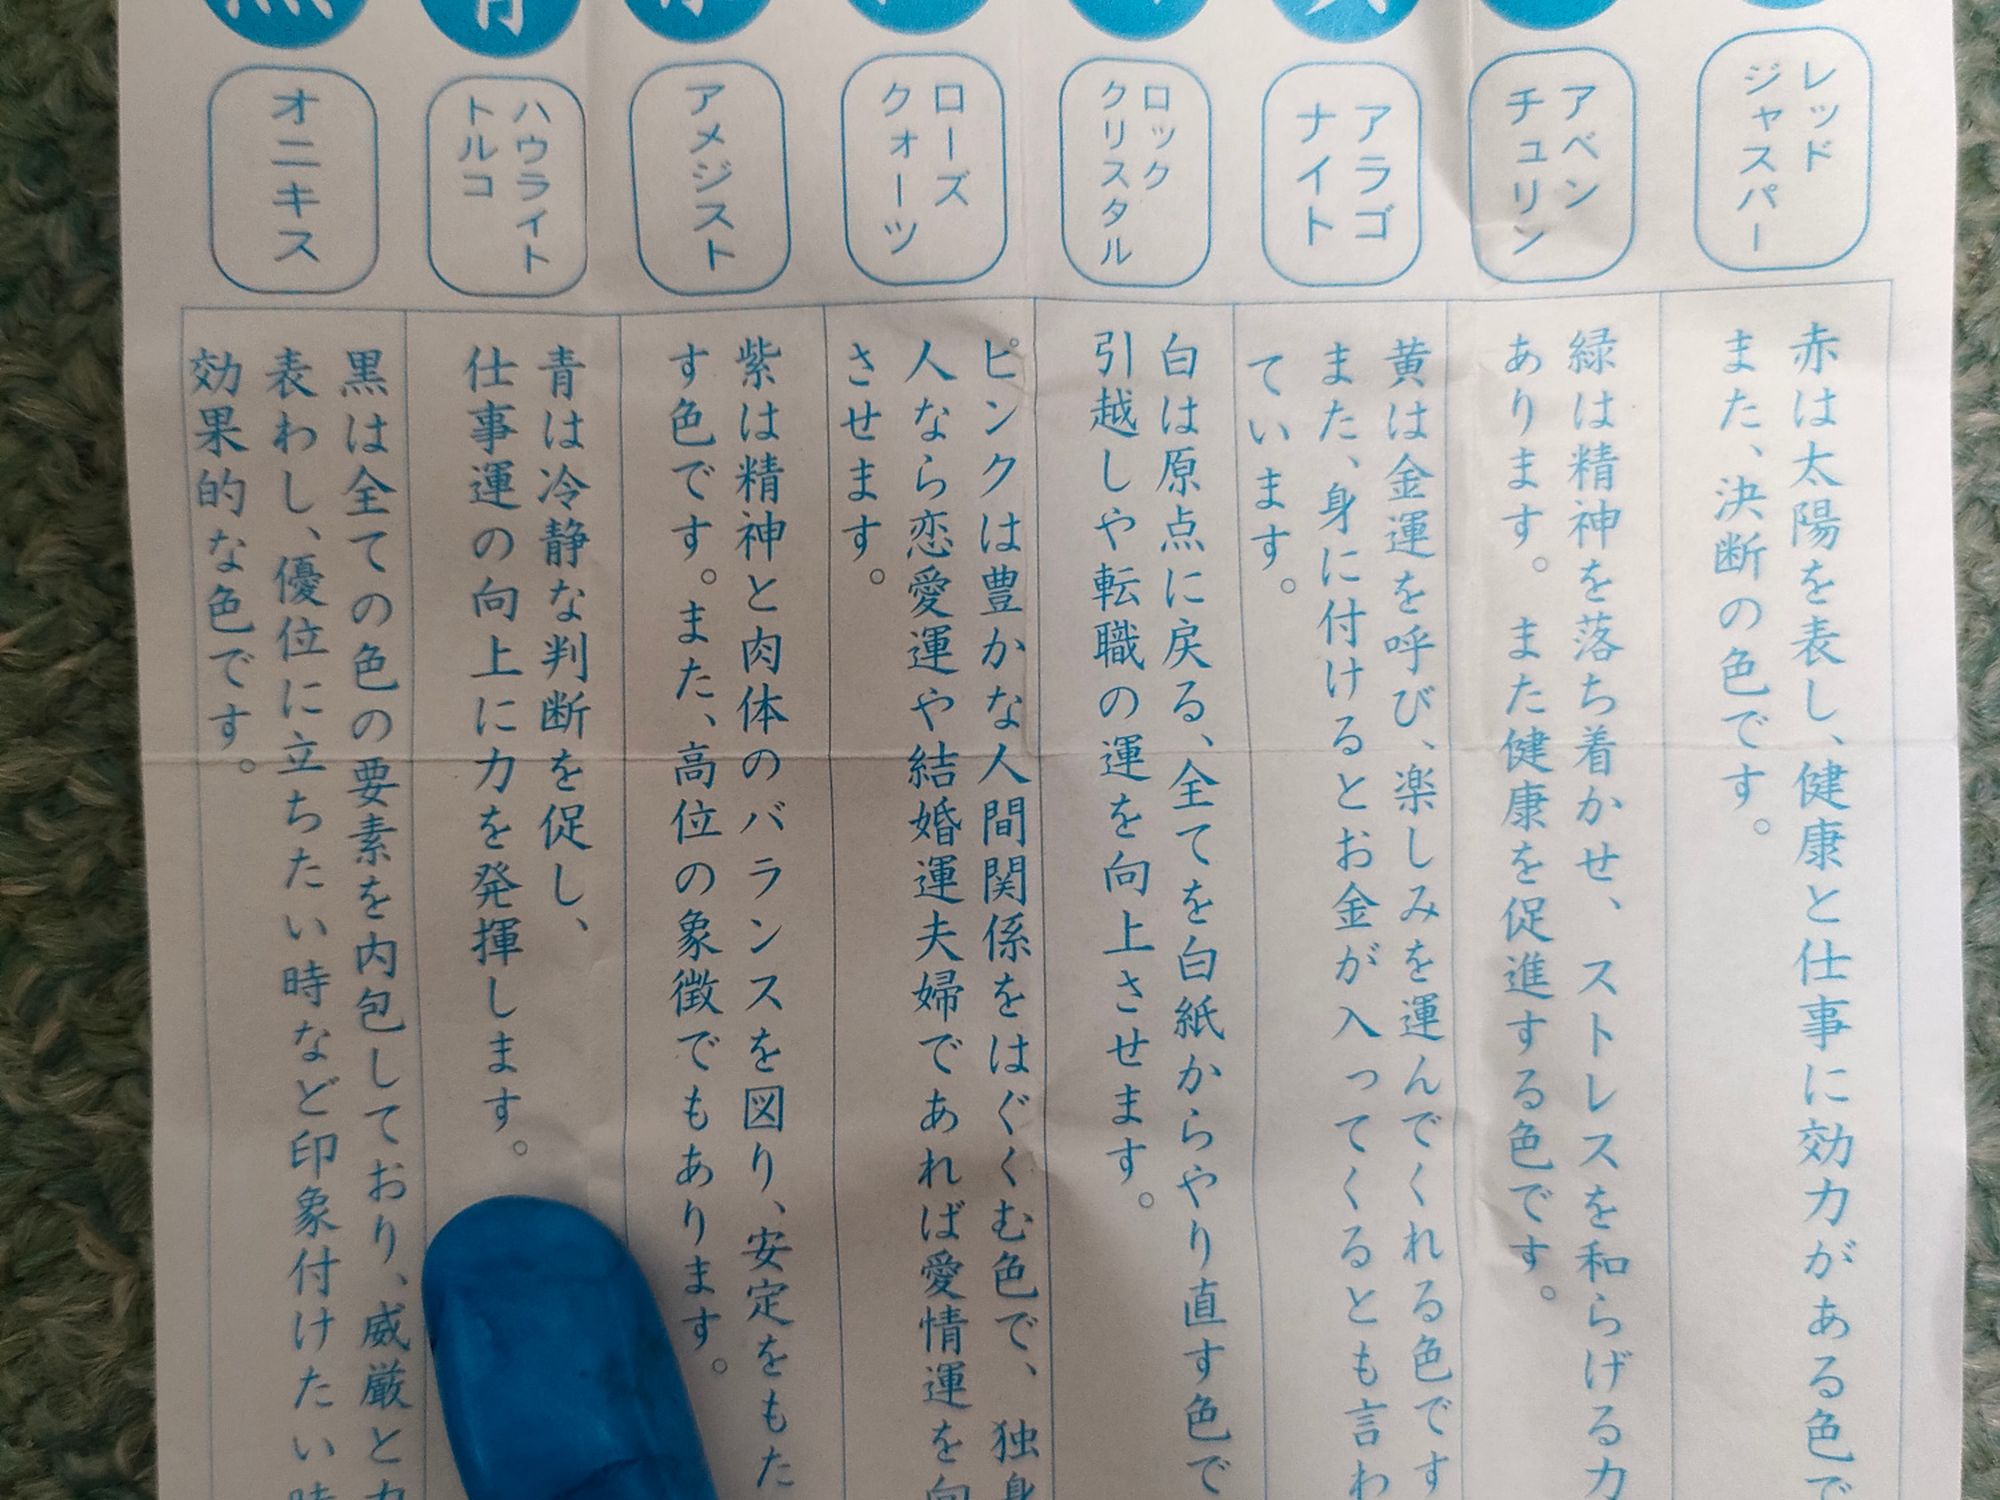 レッド
ジャスパー
赤は太陽を表し、健康と仕事に効力がある色で
また、決断の色です。
アベン
チュリン
緑は精神を落ち着かせ、ストレスを和らげる力
あります。また健康を促進する色です。
アラゴ
ナイト
黄は金運を呼び、楽しみを運んでくれる色です
また、身に付けるとお金が入ってくるとも言わ
ています。
ロック
クリスタル
白は原点に戻る、全てを白紙からやり直す色で
引越しや転職の運を向上させます。
ローズ
クォーツ
ピンクは豊かな人間関係をはぐくむ色で、独身
人なら恋愛運や結婚運夫婦であれば愛情運を向
させます。
アメジスト
紫は精神と肉体のバランスを図り、安定をもた
す色です。また、高位の象徴でもあります。
青
ハウライト
トルコ
青は冷静な判断を促し、
仕事運の向上に力を発揮します。
黒
オニキス
黒は全ての色の要素を内包しており、威厳と力
表わし、優位に立ちたい時など印象付けたい時
効果的な色です。